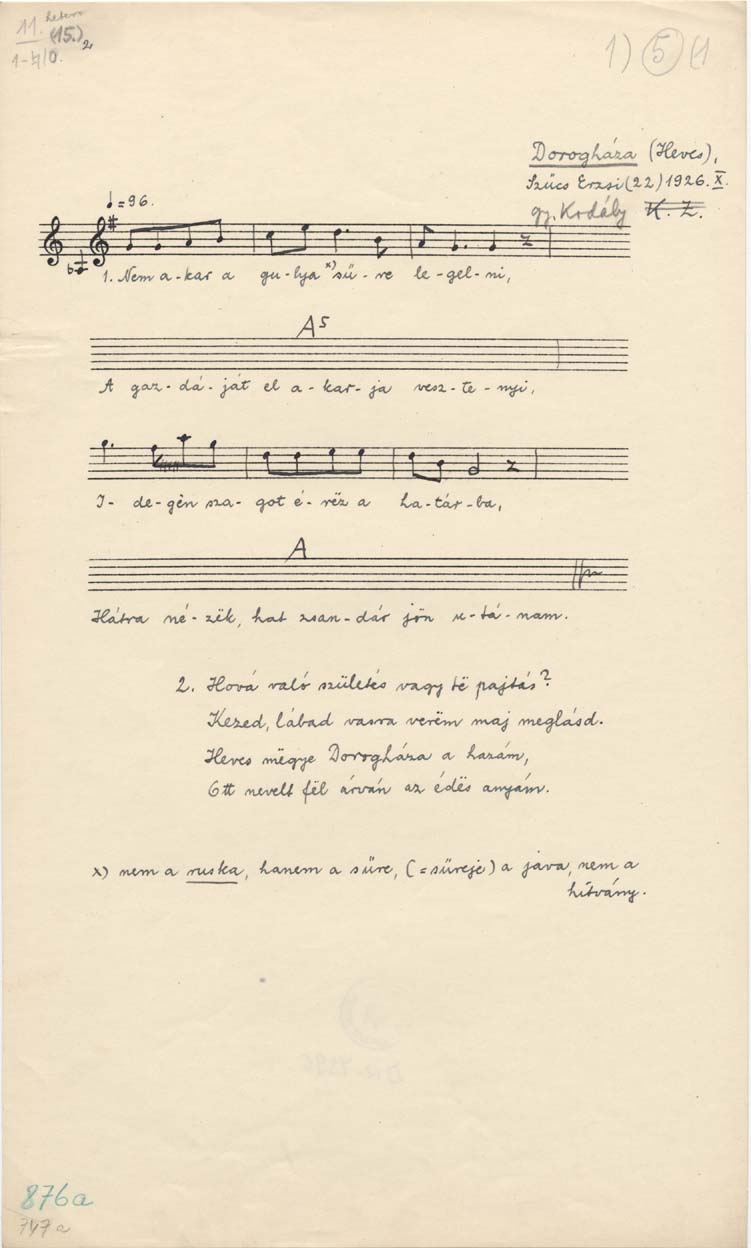 11. heteros
(15.) 2
1-♮/0.
1) 5 (1
Dorogháza (Heves),
Szűcs Erzsi (22) 1926. X.
gy. Kodály K. Z.
♩ = 96.
1. Nem a-kar a gu-lya x) sű-re le-gel-ni,
A5
A gaz-dá-ját el a-kar-ja vesz-te-nyi,
I-de-gën sza-got é-rëz a ha-tár-ba,
A
Hátra né-zëk, hat zsan-dár jön u-tá-nam.
2. Hová való születés vagy të pajtás?
Kezed, lábad vasra verëm maj meglásd.
Heves mëgye Dorogháza a hazám,
Ott nevelt fël árván az édës anyám.
x) nem a ruska, hanem a sűre, (=sűreje) a java, nem a
hitvány.
876a
747a